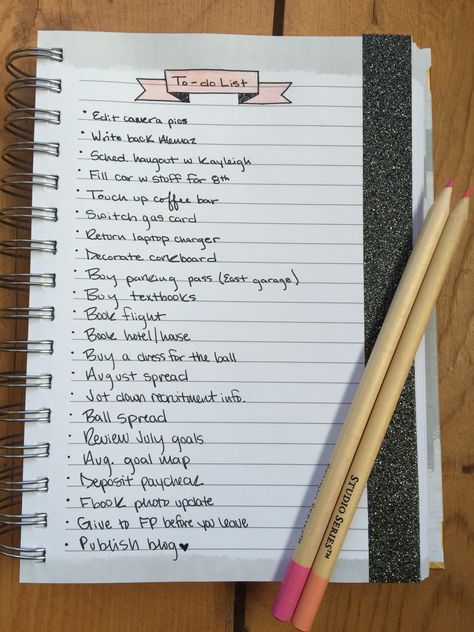 To-do List
• Edit camera pics
• Write back
• Sched. hangout w Kayleigh
• Fill car w stuff for 8th
• Touch up coffee bar
• Switch gas card
• Return laptop charger
• Decorate corkboard
• Buy parking pass (East garage)
• Buy textbooks
• Book flight
• Book hotel/house
• Buy a dress for the ball
• August spread
• Jot down recruitment info.
• Ball spread
• Review July goals
• Aug. goal map
• Deposit paycheck
• Fbook photo update
• Give to FP before you leave
• Publish blog ♥
STUDIO SERIES™